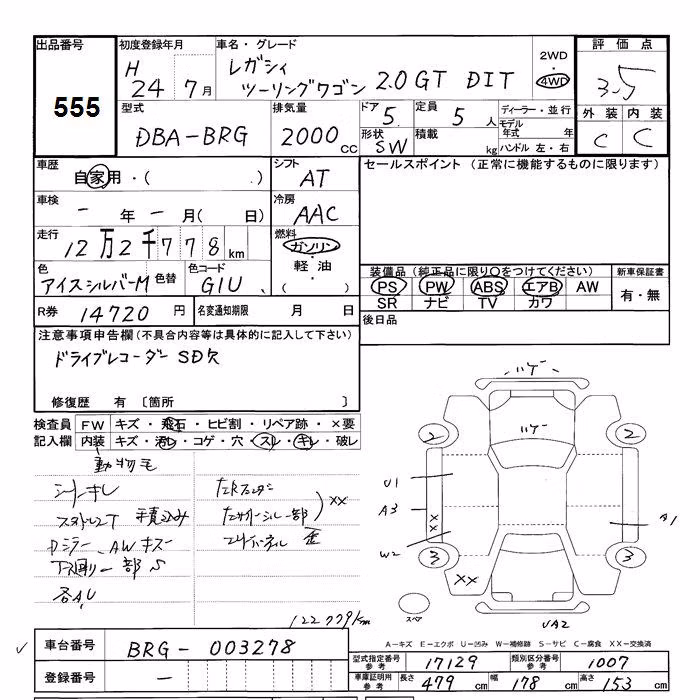 出品番号
555
初度登録年月
H 24年 7月
車名・グレード
レガシィ
ツーリングワゴン 2.0GT DIT
2WD
4WD
評価点
3.5
外装 内装
C C
型式
DBA-BRG
排気量
2000 cc
ドア 5
形状 SW
定員 5 人
積載 kg
ディーラー・並行
モデル年式 年
ハンドル 左・右
車歴
自家用・( )
シフト
AT
セールスポイント (正常に機能するものに限ります)
車検
- 年 - 月( 日)
冷房
AAC
走行
12万2千778km
燃料
ガソリン
・
軽油
・
( )
色
アイスシルバーM 色替
色コード
G1U
装備品 (純正品に限り○をつけてください)
PS PW ABS エアB AW
SR ナビ TV カワ
新車保証書
有・無
R券 14720 円
名変通知期限 月 日
後日品
注意事項申告欄(不具合内容等は具体的に記入して下さい)
ドライブレコーダー SD欠
修復歴 有 〔箇所 〕
検査員記入欄
FW キズ・飛石・ヒビ割・リペア跡・×要
内装 キズ・汚レ・コゲ・穴・スレ・キレ・破レ
動物毛
シートキレ
スタッドレスT 手積込み
Dミラー、AWキズ
下廻り一部S
各A,U
XX
122779km
ハゲ
ハゲ
2
2
U1
A3
XX
W2
A1
3
3
XX
スペア
UA2
A-キズ E-エクボ U-凹み W-補修跡 S-サビ C-腐食 XX-交換済
車台番号 BRG-003278
登録番号 -
型式指定番号 参考 17129
類別区分番号 参考 1007
車庫証明用 参考 長さ 479 cm 幅 178 cm 高さ 153 cm